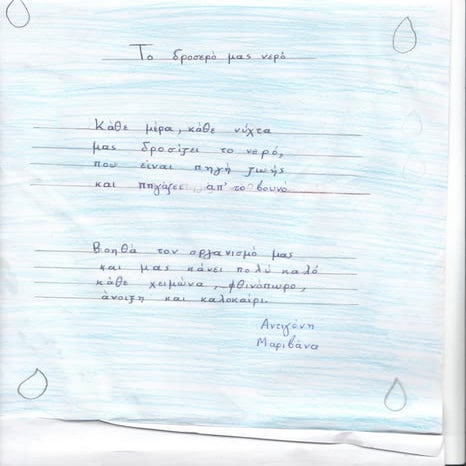 Το δροσερό μας νερό
Κάθε μέρα, κάθε νύχτα
μας δροσίζει το νερό,
που είναι πηγή ζωής
και πηγάζει απ' το βουνό
Βοηθά τον οργανισμό μας
και μας κάνει πολύ καλό
κάθε χειμώνα, φθινόπωρο,
άνοιξη και καλοκαίρι.
Αντιγόνη
Μαριβάνα